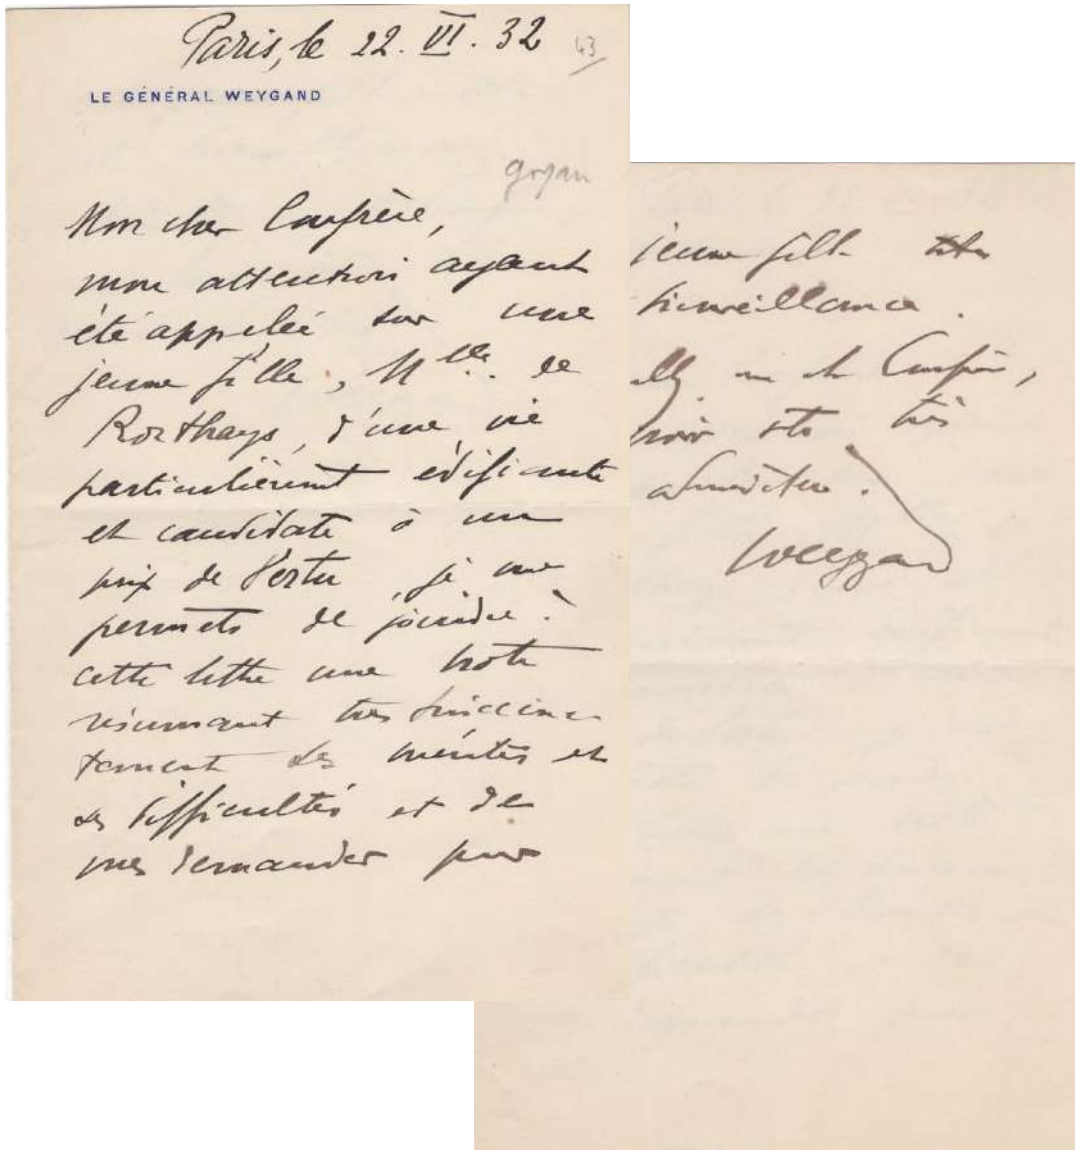 Paris, le 22. VI. 32
43
LE GÉNÉRAL WEYGAND
Mon cher Confrère,
mon attention ayant
été appelée sur une
jeune fille, Mlle. de
Rorthays, d'une vie
particulièrement édifiante
et candidate à un
prix de Vertu, je me
permets de joindre à
cette lettre une note
résumant très succinc-
tement ses mérites et
ses difficultés et de
vous demander pour
jeune fille
bienveillance.
Confrère,
très
Weygand